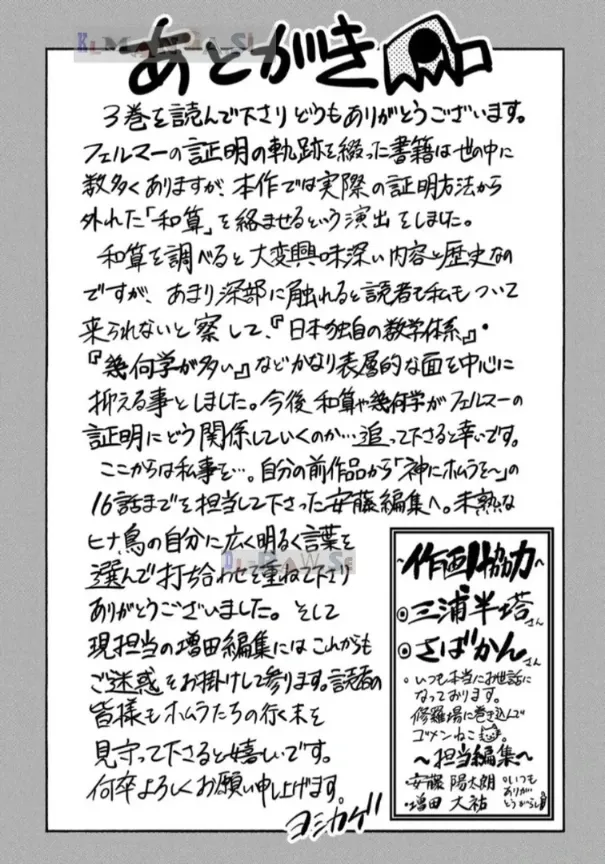 あとがき
3巻を読んで下さりどうもありがとうございます。
フェルマーの証明の軌跡を綴った書籍は世の中に
数多くありますが、本作では実際の証明方法から
外れた「和算」を絡ませるという演出をしました。
和算を調べると大変興味深い内容と歴史なの
ですが、あまり深部に触れると読者も私もついて
来られないと察して、『日本独自の数学体系』・
『幾何学が多い』などかなり表層的な面を中心に
抑える事としました。今後和算や幾何学がフェルマーの
証明にどう関係していくのか…追って下さると幸いです。
ここからは私事を…。自分の前作品から「神にホムラを〜」の
16話までを担当して下さった安藤編集へ。未熟な
ヒナ鳥の自分に広く明るく言葉を
選んで打ち合わせを重ねて下さり
ありがとうございました。そして
現担当の増田編集にはこれからも
ご迷惑をお掛けして参ります。読者の
皆様もホムラたちの行く末を
見守って下さると嬉しいです。
何卒よろしくお願い申し上げます。
ヨシカゲ
〜作画協力〜
◎三浦半塔さん
◎さばかんさん
◦いつも本当にお世話に
なっております。
修羅場に巻き込んで
ゴメンねこ
〜担当編集〜
・安藤 陽太朗
・増田 大祐
◦いつも
ありが
とうがらし